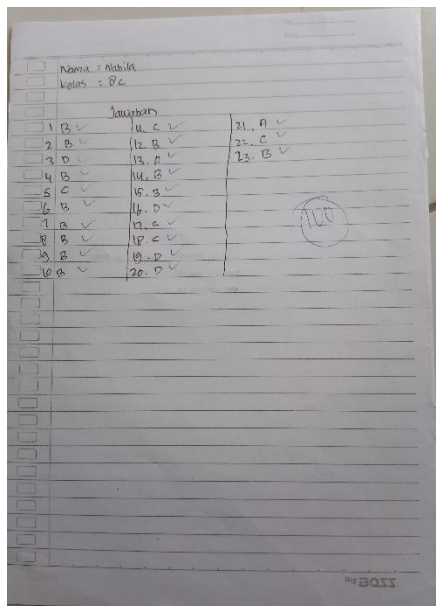 Nama = Nabila
Kelas = 8C
Jawaban
1 B
2 B
3 D
4 B
5 C
6 B
7 B
8 B
9 B
10 B
11. C
12. B
13. A
14. B
15. B
16. D
17. C
18. C
19. D
20. D
21. A
22. C
23. B
100
BOZZ